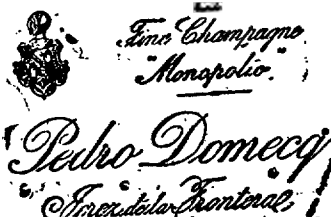 Fine Champagne
"Monopolio."
Pedro Domecq
Jerez de la Frontera